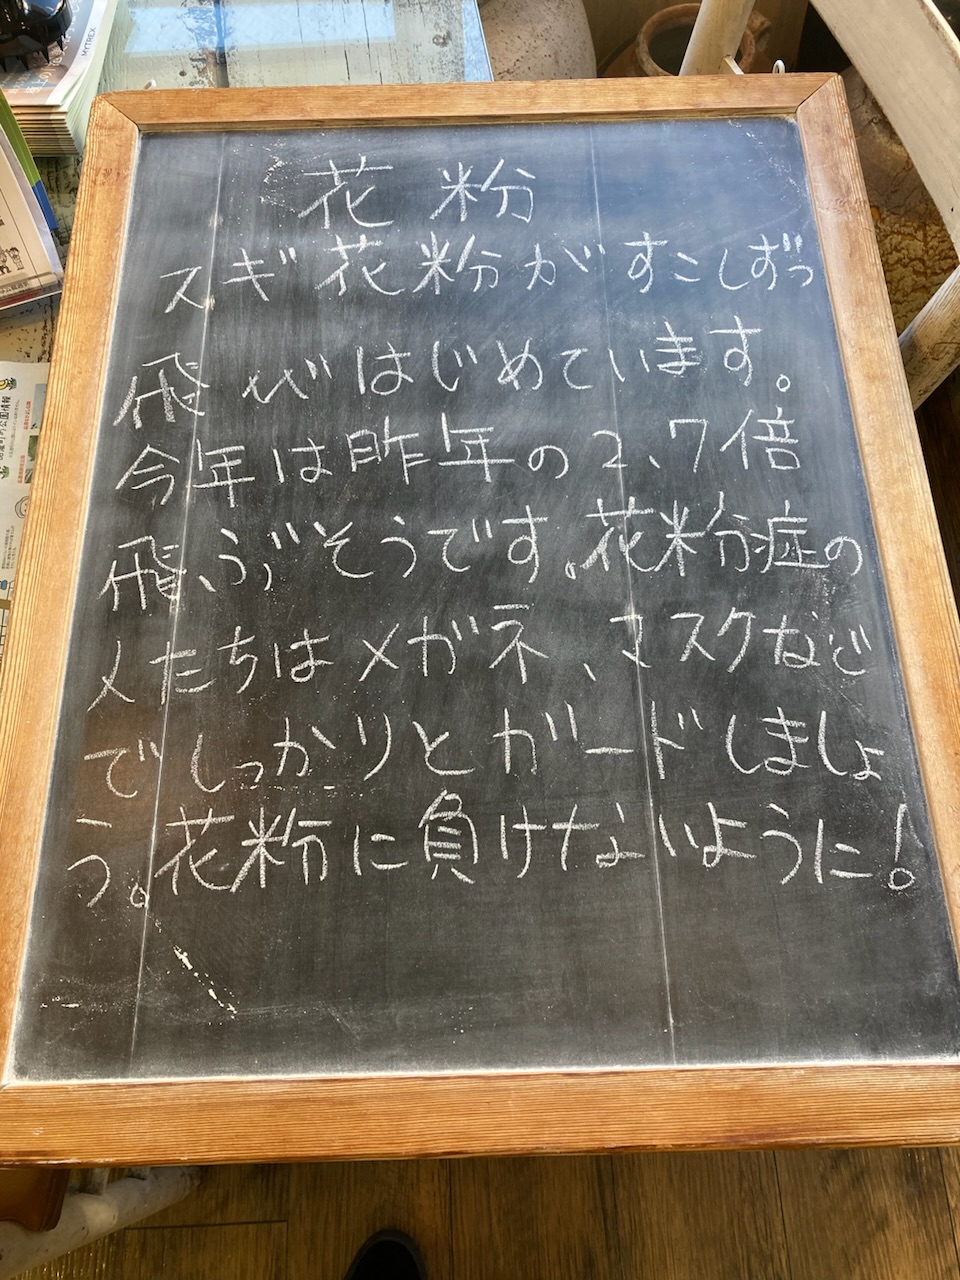 花粉
スギ花粉がすこしずつ
飛びはじめています。
今年は昨年の2、7倍
飛ぶそうです。花粉症の
人たちはメガネ、マスクなど
でしっかりとガードしましょ
う。花粉に負けないように!
MYTREX